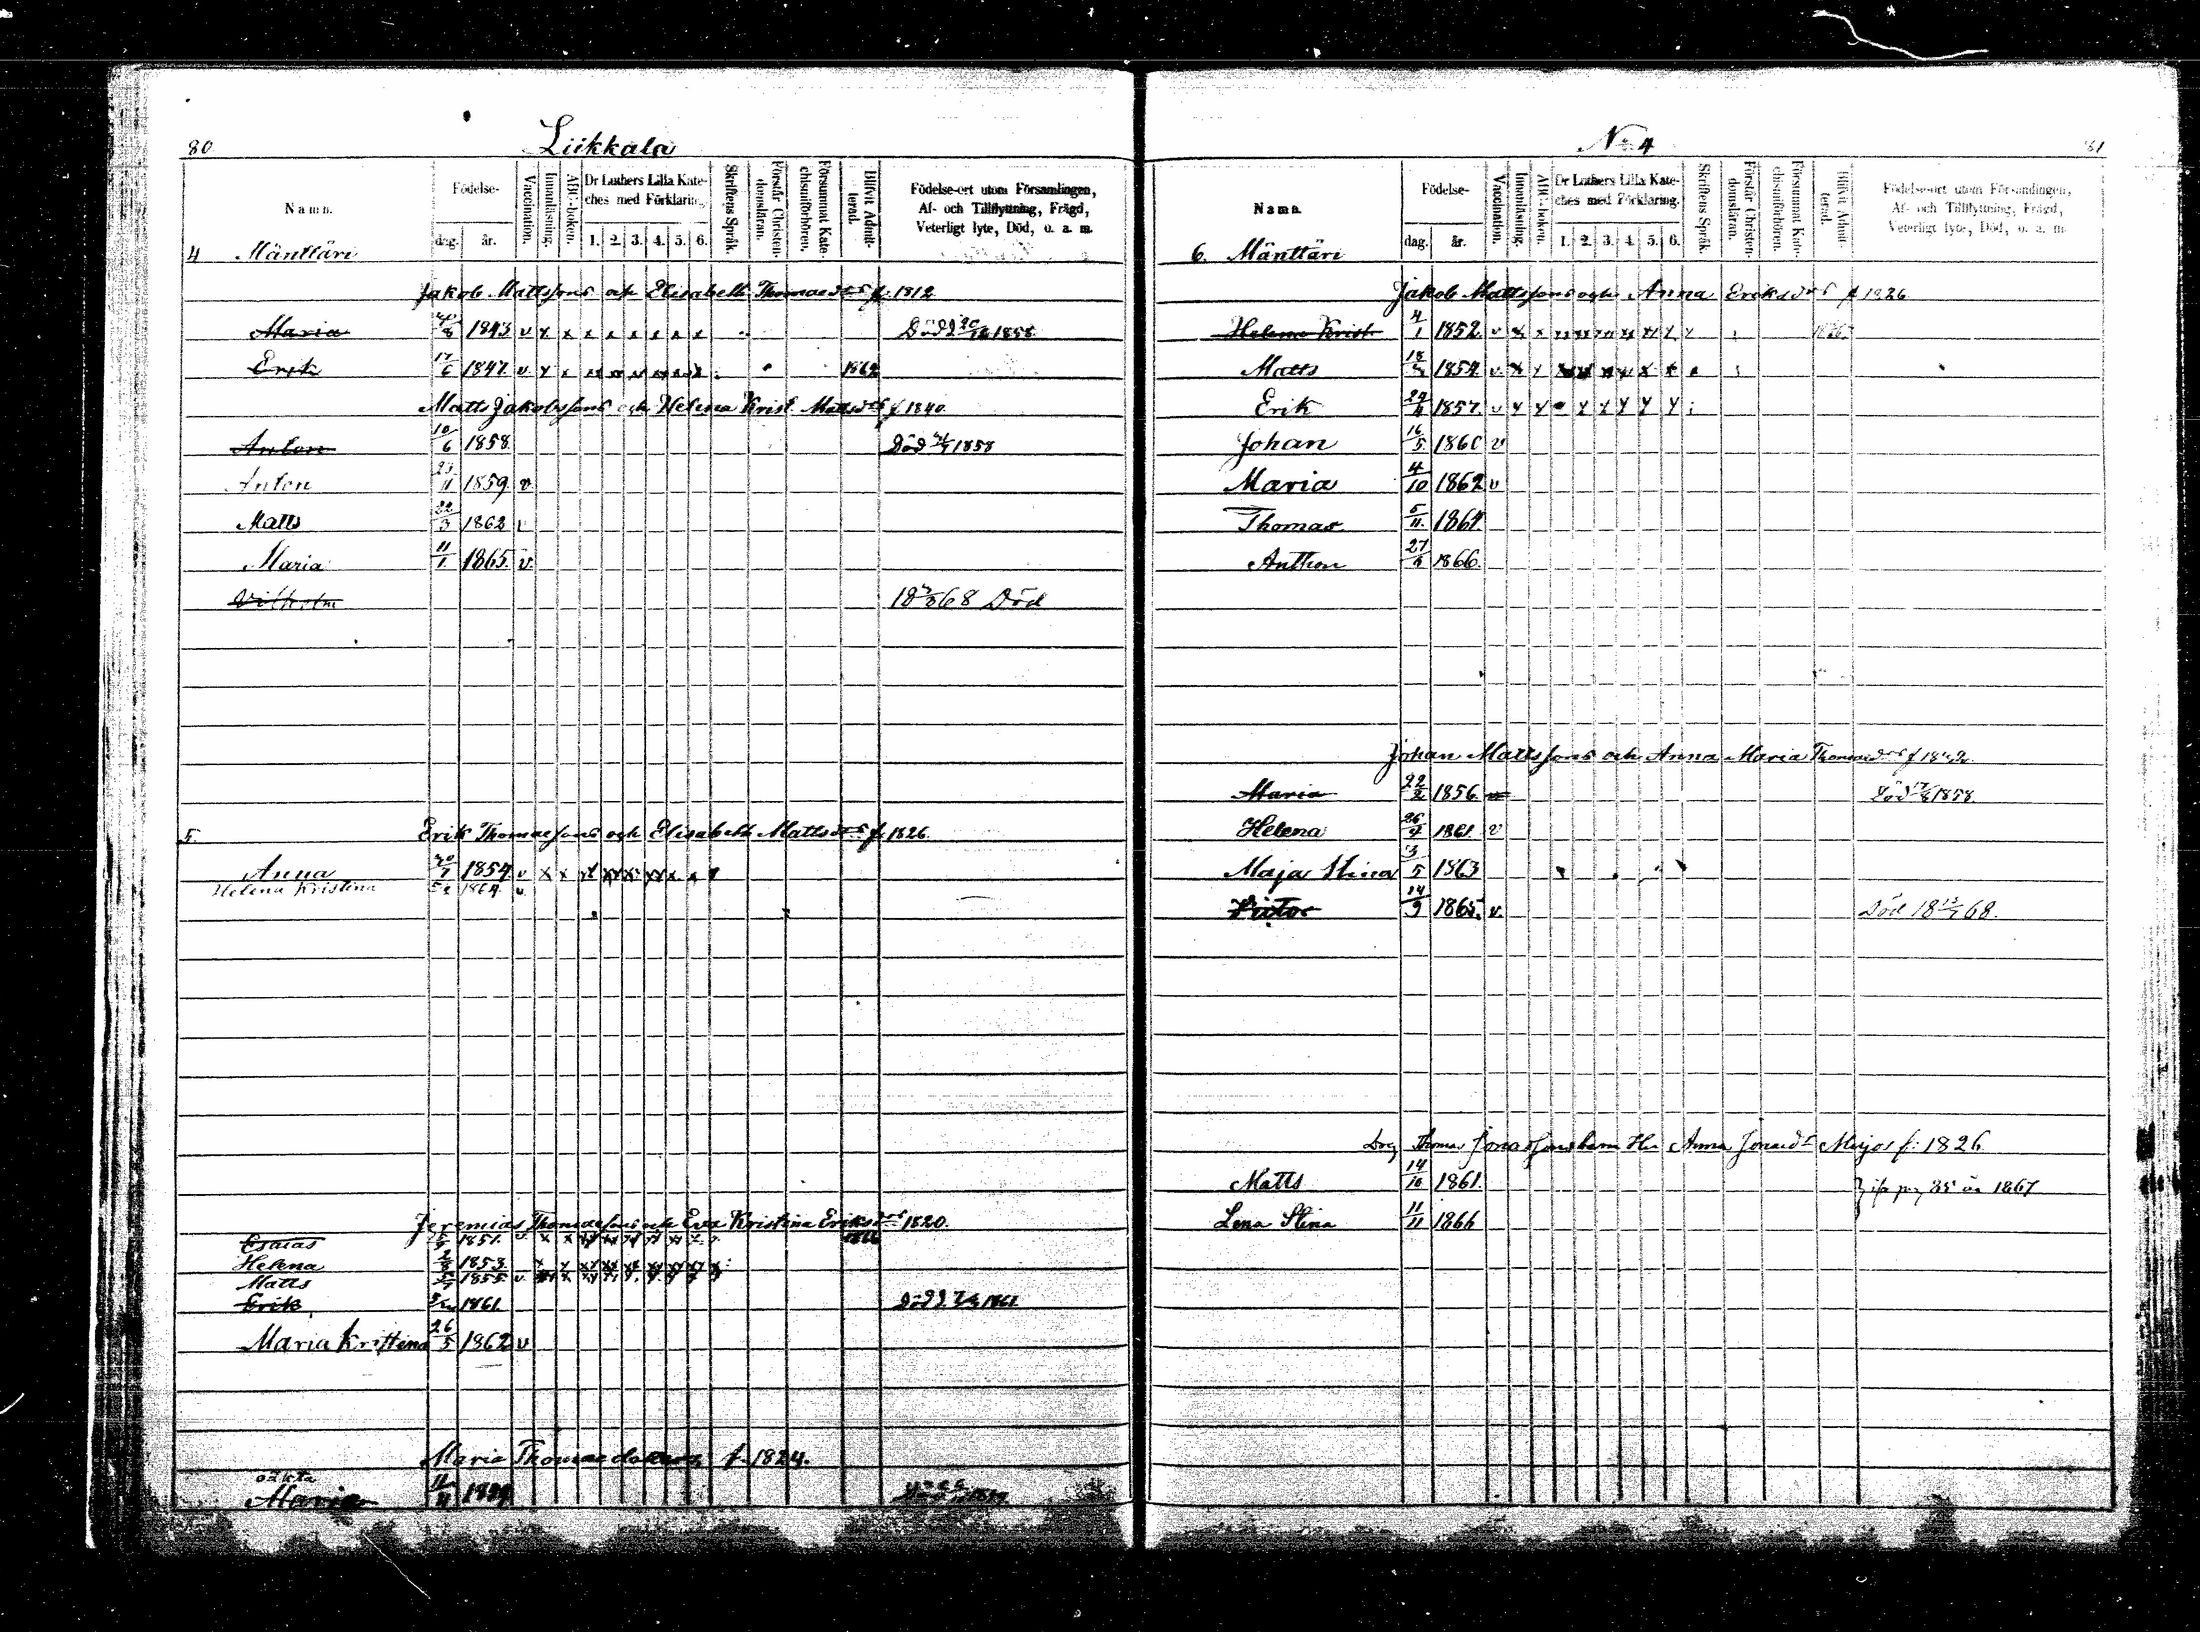 80.
Liikkala
Namn.
Födelse-
dag.
år.
Vaccination.
Innanläsning.
ABC-boken.
Dr Luthers Lilla Kate-
ches med Förklaring.
1. 2. 3. 4. 5. 6.
Skriftens Språk.
Förstår Christen-
domsläran.
Försummat Kate-
chismiförhören.
Blifvit Admit-
terad.
Födelse-ort utom Församlingen,
Af- och Tillflyttning, Frägd,
Veterligt lyte, Död, o. a. m.
4 Mänttäri
Jakob Mattssons och Elisabeth Thomaedotr f. 1812
Maria 1843 v x x x x x x x x Död 1858
Erik 17/6 1847 v x x 1862
Matts Jakobssons och Helena Krist. Mattsdotr f 1840.
Anton 10/6 1858 Död 1858
Anton 23/11 1859 v.
Matts 22/3 1862 v
Maria 11/1 1865. v.
Vilhelm 18 68 Död
5. Erik Thomassons och Elisabeth Mattsdotr f. 1826.
Anna 1854 v x x
Helena Kristina 1864 v
Jeremias Thomaesons och Eva Kristina Eriksdotr 1820.
Esaias 1851. v x x
Helena 2/8 1853
Matts 1855 v.
Erik 1861 Död 1861
Maria Kristina 26/5 1862 v
Maria Thomaedotters f. 1824.
oäkta
Maria
N:o 4
81
Namn.
Födelse-
dag.
år.
Vaccination.
Innanläsning.
ABC-boken.
Dr Luthers Lilla Kate-
ches med Förklaring.
1. 2. 3. 4. 5. 6.
Skriftens Språk.
Förstår Christen-
domsläran.
Försummat Kate-
chismiförhören.
Blifvit Admit-
terad.
Födelse-ort utom Församlingen,
Af- och Tillflyttning, Frägd,
Veterligt lyte, Död, o. a. m.
6. Mänttäri
Jakob Mattssons och Anna Eriksdotr f 1826
Helena Krist. 4/1 1852 v x x
Matts 1854. v. x x
Erik 1857. v x x
Johan 16/5 1860 v
Maria 4/10 1862 v
Thomas 5/11 1864
Anthon 1866.
Johan Mattssons och Anna Maria Thomaedotr f
Maria 22/2 1856. Död 1858.
Helena 1861. v
Maja Stina 3/5 1863
Viktor 14/9 1865. v. Död 18 68.
Thomas Jonassons barn Anna Jonaed f. 1826
Matts 14/10 1861. 1867
Lena Stina 11/11 1866